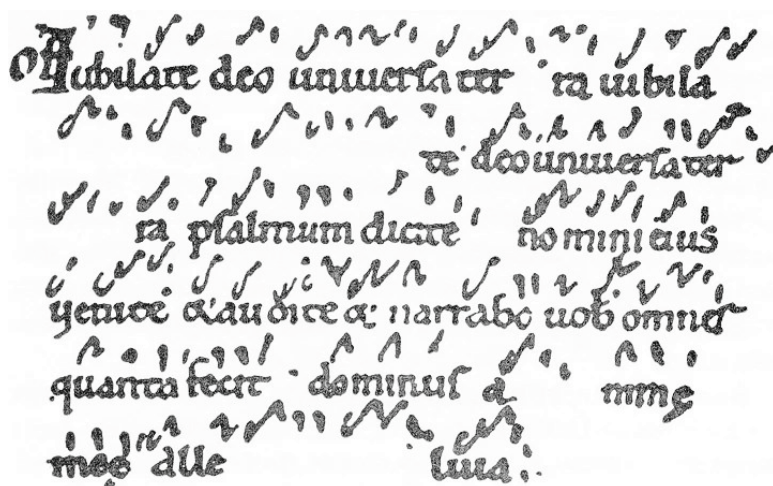 Iubilate deo uniuersa ter ra iubila
te deo uniuersa ter
ra psalmum dicite nomini eius
uenite & audite & narrabo uob omnes
quanta fecit dominus a nimę
meę alle luia.